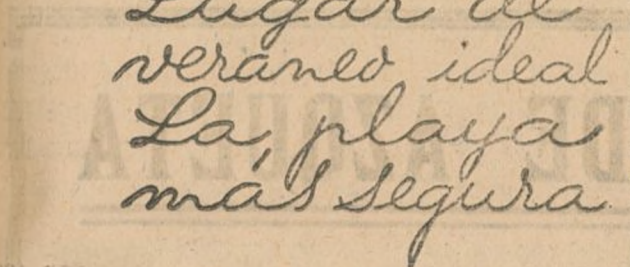 Lugar de
veraneo ideal
La playa
más segura